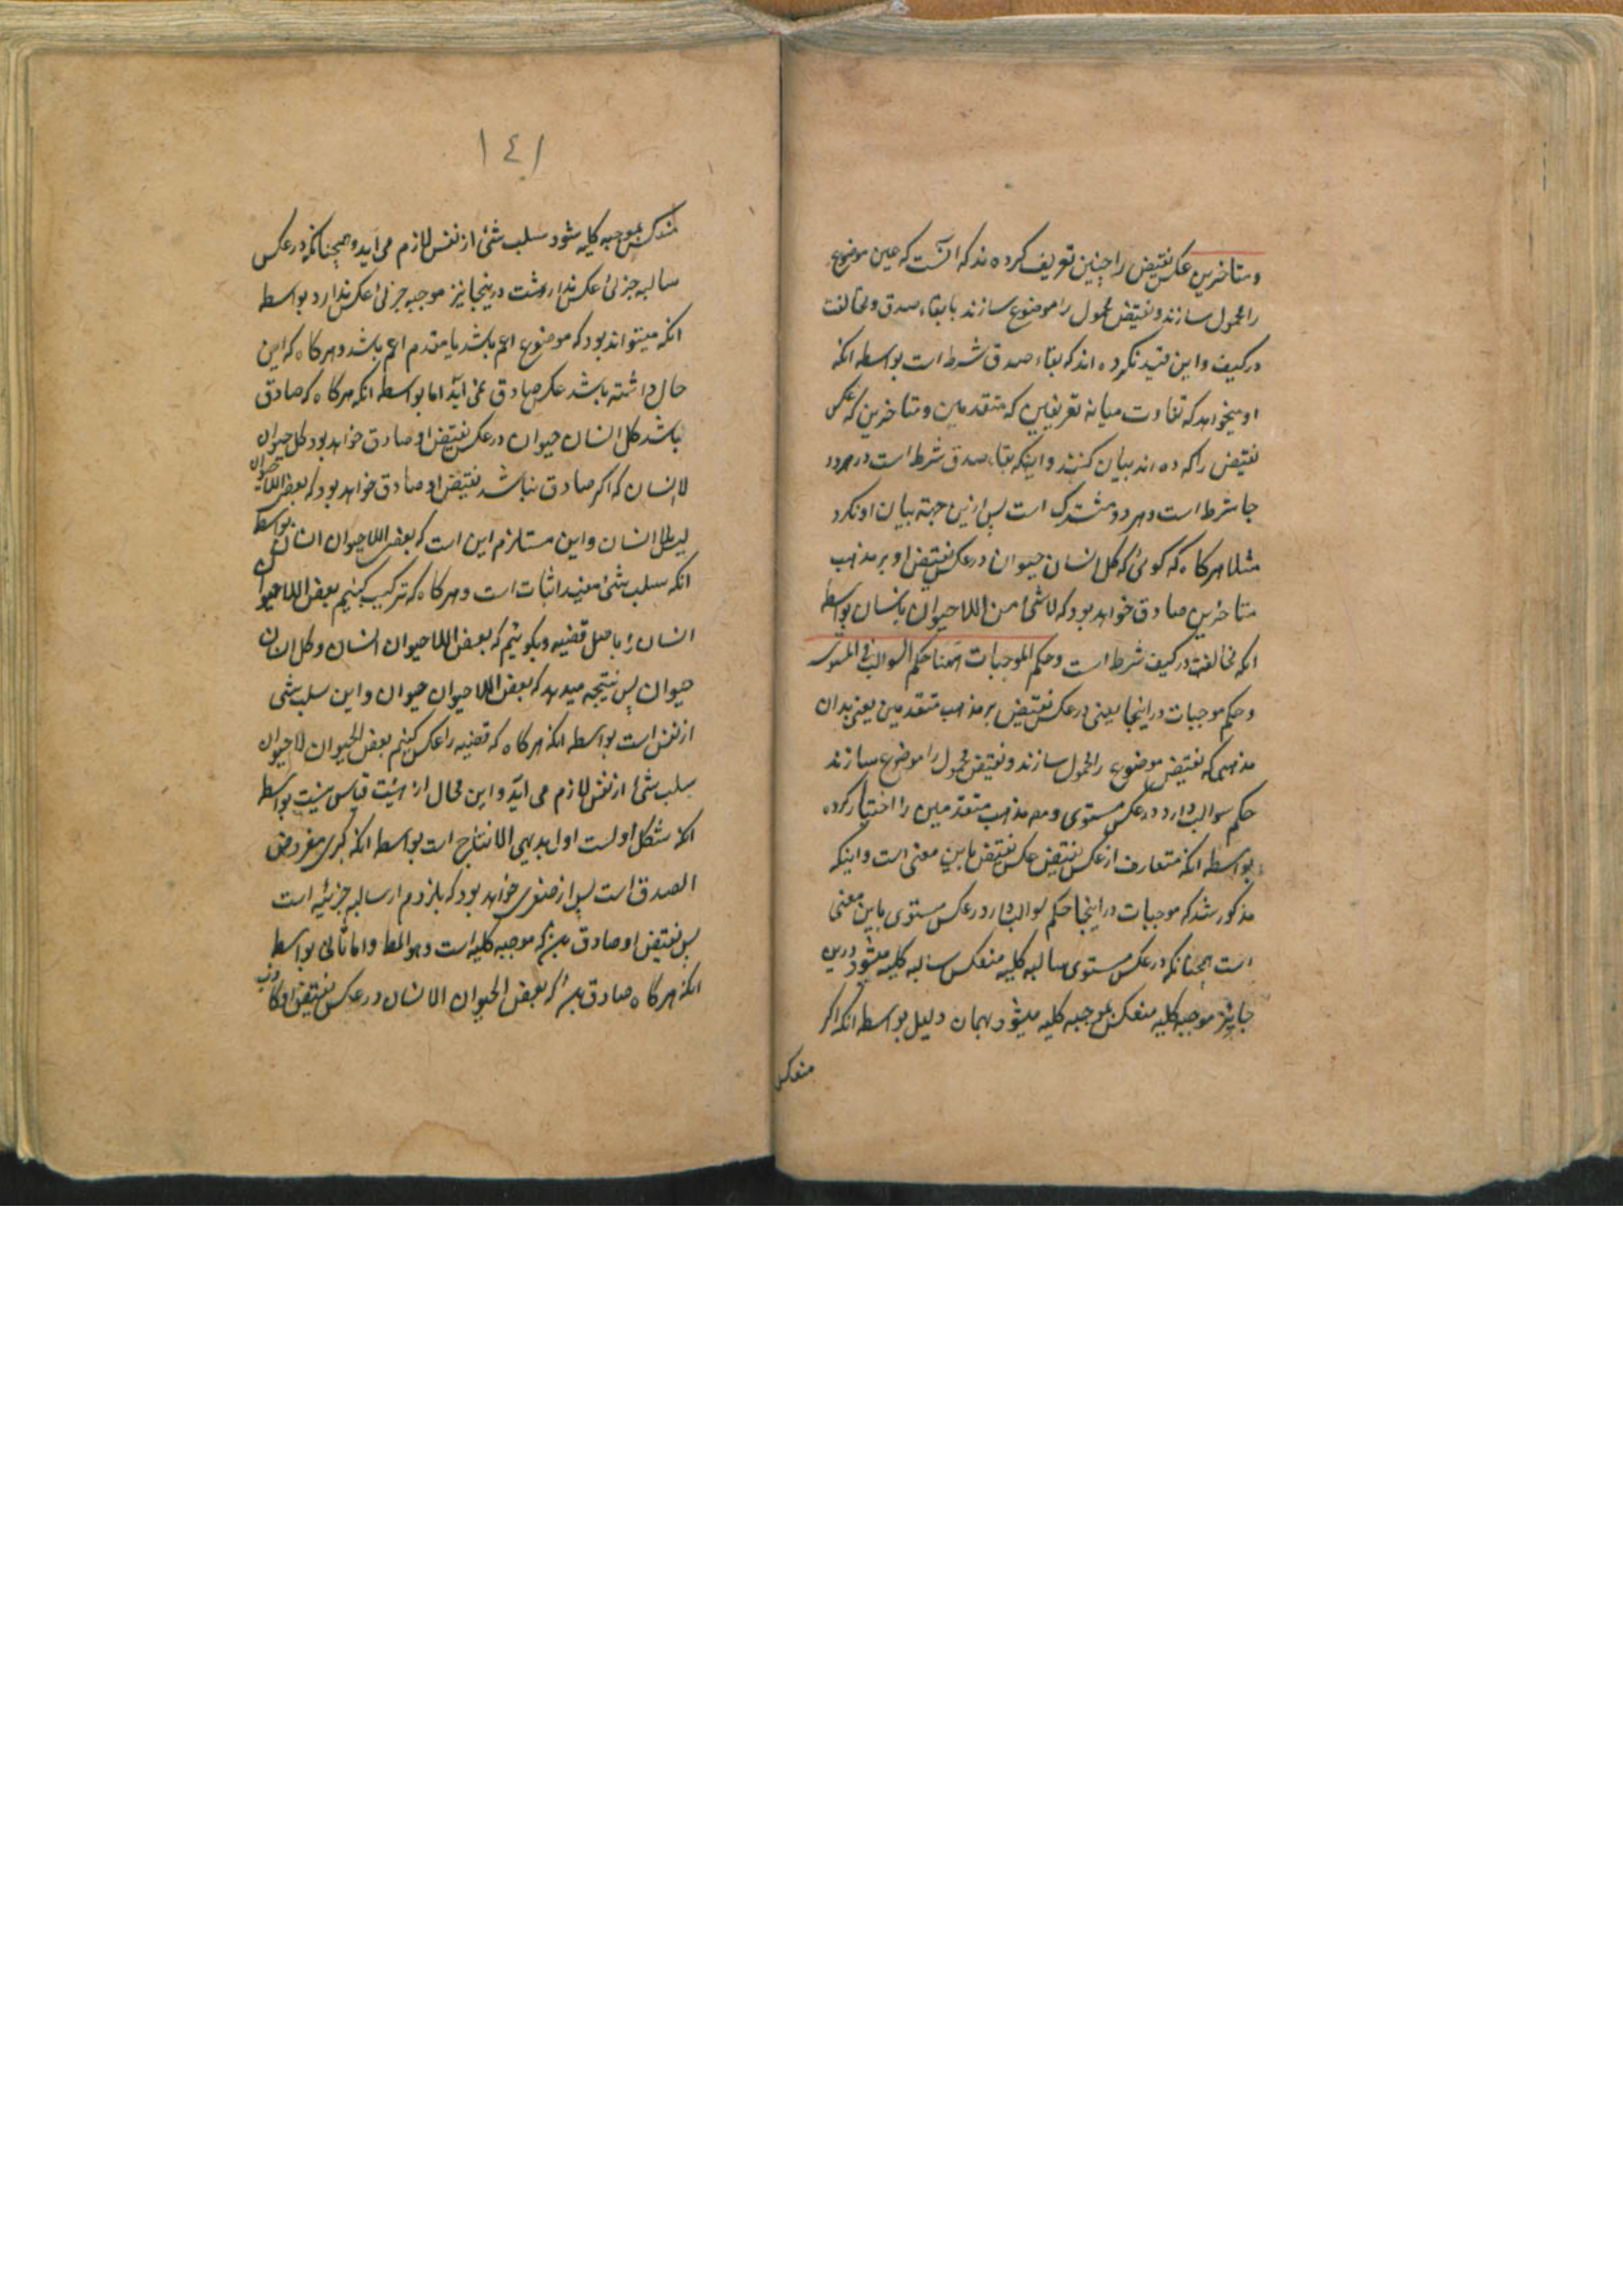 ومتاخرین عکس نقیض را چنین تعریف کرده اند که انست که عین موضوع
را محمول سازند و نقیض محمول را موضوع سازند با بقاء صدق و مخالفت
در کیف و این قید نکرده اند که بقاء صدق شرط است بواسطه انکه
او میخواهد که تفاوت میانه تعریفین که متقدمین و متاخرین که عکس
نقیض را کرده اند بیان کنند و اینکه بقاء صدق شرط است در هردو
جا شرط است و هردو مشترک است پس ازین جهة بیان او نکرد
مثلا هرکاه که کوئی که کل انسان حیوان در عکس نقیض او بر مذهب
متاخرین صادق خواهد بود که لا شئ من اللاحیوان بانسان بواسطه
انکه مخالفت در کیف شرط است و حکم الموجبات ههنا حکم السوالب فی المستوی
و حکم موجبات در اینجا یعنی در عکس نقیض بر مذهب متقدمین یعنی بدان
مذهبی که نقیض موضوع را محمول سازند و نقیض محمول را موضوع سازند
حکم سوالب دارد در عکس مستوی و مصه مذهب متقدمین را اختیار کرده
بواسطه انکه متعارف از عکس نقیض عکس نقیض باین معنی است و اینکه
مذکور شد که موجبات در اینجا حکم سوالب دارد در عکس مستوی باین معنی
است همچنانکه در عکس مستوی سالبه کلیه منعکس بسالبه کلیه میشود درین
جا نیز موجبه کلیه منعکس بموجبه کلیه میشود بهمان دلیل بواسطه انکه اکر
منعکس
١٤١
منعکس بموجبه کلیه نشود سلب شئ از نفس لازم می اید و همچنانکه در عکس
سالبه جزئی عکس نداشت در ینجا نیز موجبه جزئی عکس ندارد بواسطه
انکه میتواند بود که موضوع اعم باشد یا مقدم اعم باشد و هرکاه که این
حال داشته باشد عکس صادق نمی اید اما بواسطه انکه هرکاه که صادق
باشد کل انسان حیوان در عکس نقیض او صادق خواهد بود کل حیوان
لا انسان که اکر صادق نباشد نقیض او صادق خواهد بود که بعض اللاحیوان
لیس لا انسان و این مستلزم این است که بعض اللاحیوان انسان بواسطه
انکه سلب شئ مفید اثبات است و هرکاه که ترکیب کنیم بعض اللاحیوان
انسان را با اصل قضیه و بکوئیم که بعض اللاحیوان انسان و کل انسان
حیوان پس نتیجه میدهد که بعض اللاحیوان حیوان و این سلب شئ
از نفس است بواسطه انکه هرکاه که قضیه را عکس کنیم بعض الحیوان لا حیوان
سلب شئ از نفس لازم می اید و این محال از هیئت قیاس نیست بواسطه
انکه شکل اولست اول بدیهی الانتاج است بواسطه انکه کبری مفروض
الصدق است پس از صغری خواهد بود که ملزوم او سالبه جزئیه است
پس نقیض او صادق باشد که موجبه کلیه است و هو المط و اما ثانی بواسطه
انکه هرکاه صادق باشد که بعض الحیوان الا انسان در عکس نقیض او کاذب